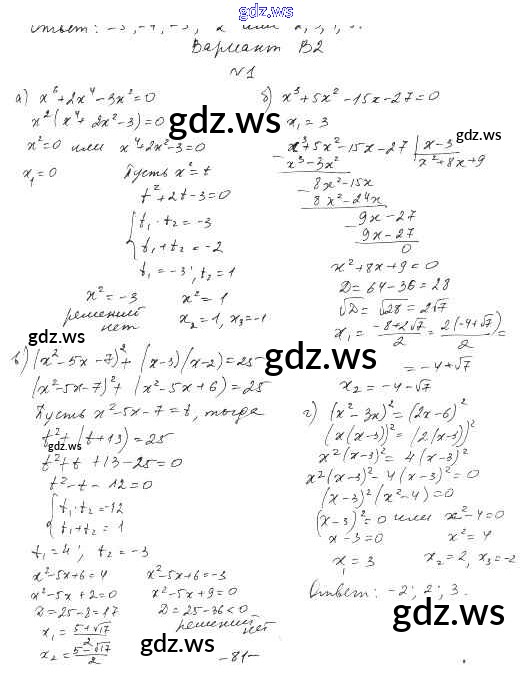 gdz.ws
Ответ: -3, -1, -3,
Вариант В2
№1
а) x⁶+2x⁴-3x²=0
x²(x⁴+2x²-3)=0
x²=0 или x⁴+2x²-3=0
x₁=0 Пусть x²=t
t²+2t-3=0
t₁·t₂=-3
t₁+t₂=-2
t₁=-3; t₂=1
x²=-3 x²=1
решений x₂=1, x₃=-1
нет
б) x³+5x²-15x-27=0
x₁=3
x³+5x²-15x-27 | x-3
x³-3x² x²+8x+9
8x²-15x
8x²-24x
9x-27
9x-27
0
x²+8x+9=0
D=64-36=28
√D=√28=2√7
x₁=(-8+2√7)/2=2(-4+√7)/2=
=-4+√7
x₂=-4-√7
в) (x²-5x-7)²+(x-3)(x-2)=25
(x²-5x-7)²+(x²-5x+6)=25
Пусть x²-5x-7=t, тогда
t²+(t+13)=25
t²+t+13-25=0
t²-t-12=0
t₁·t₂=-12
t₁+t₂=1
t₁=4; t₂=-3
x²-5x+6=4 x²-5x+6=-3
x²-5x+2=0 x²-5x+9=0
D=25-8=17 D=25-36<0
x₁=(5+√17)/2 решений
x₂=(5-√17)/2 нет
г) (x²-3x)²=(2x-6)²
(x(x-3))²=(2(x-3))²
x²(x-3)²=4(x-3)²
x²(x-3)²-4(x-3)²=0
(x-3)²(x²-4)=0
(x-3)²=0 или x²-4=0
x-3=0 x²=4
x₁=3 x₂=2, x₃=-2
Ответ: -2; 2; 3.
-81-
gdz.ws
gdz.ws
gdz.ws
gdz.ws
gdz.ws
gdz.ws
gdz.ws
gdz.ws
gdz.ws